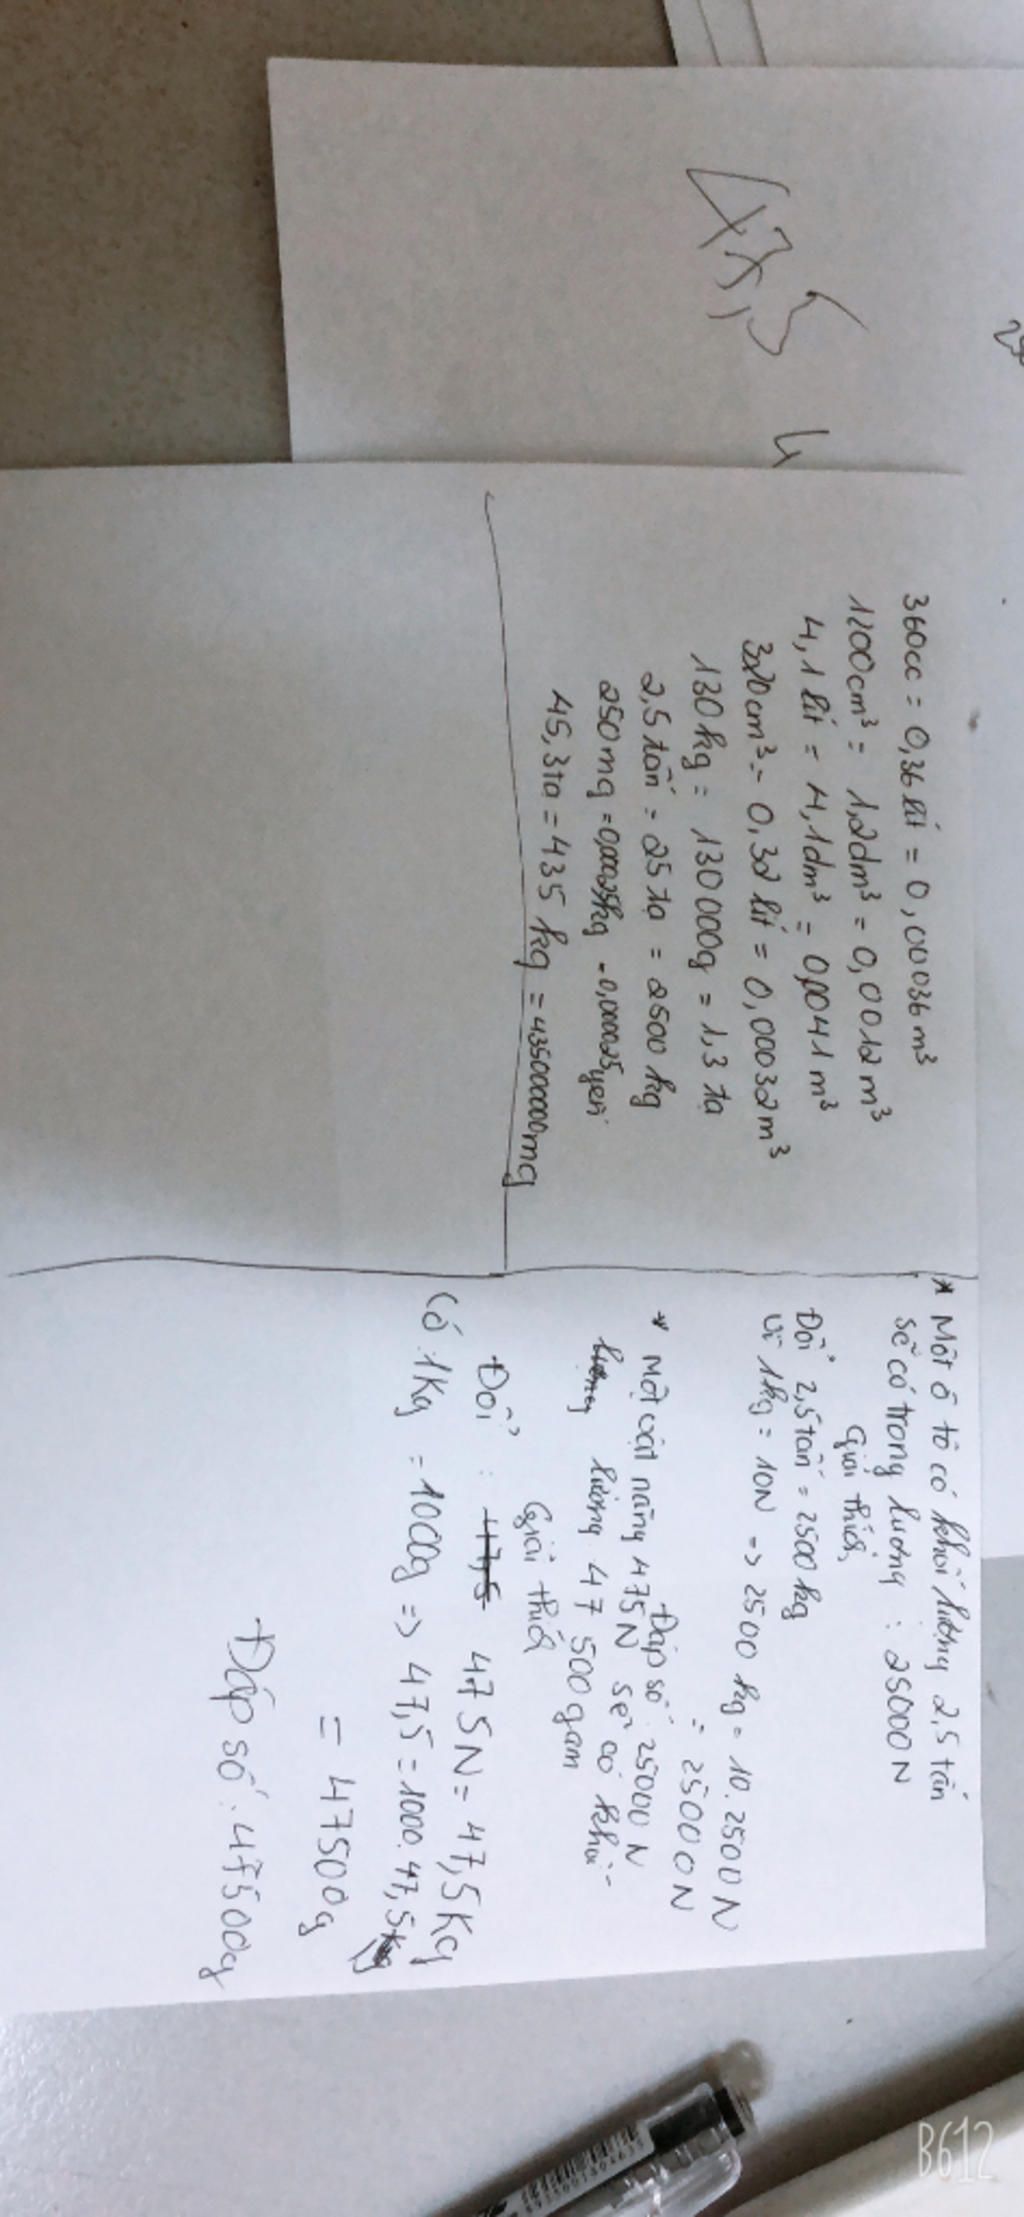 47,5
4
360cc = 0,36 lít = 0,00036 m³
1200cm³ = 1,2dm³ = 0,0012 m³
4,1 lít = 4,1dm³ = 0,0041 m³
320cm³ = 0,32 lít = 0,00032m³
130 kg = 130 000g = 1,3 tạ
2,5 tấn = 25 tạ = 2500 kg
250mg = 0,00025kg = 0,000025 yến
45,3 tạ = 435 kg = 435000000mg
* Một ô tô có khối lượng 2,5 tấn
sẽ có trọng lượng : 25000 N
Giải thích
Đổi 2,5 tấn = 2500 kg
Vì 1kg = 10N => 2500 kg = 10.2500 N
= 25000N
Đáp số : 25000 N
* Một vật nặng 475N sẽ có khối
lượng 47 500 gam
Giải thích
Đổi : 47,5 475N = 47,5Kg
Có 1Kg = 1000g => 47,5 = 1000.47,5
= 47500g
Đáp số : 47500g
B612